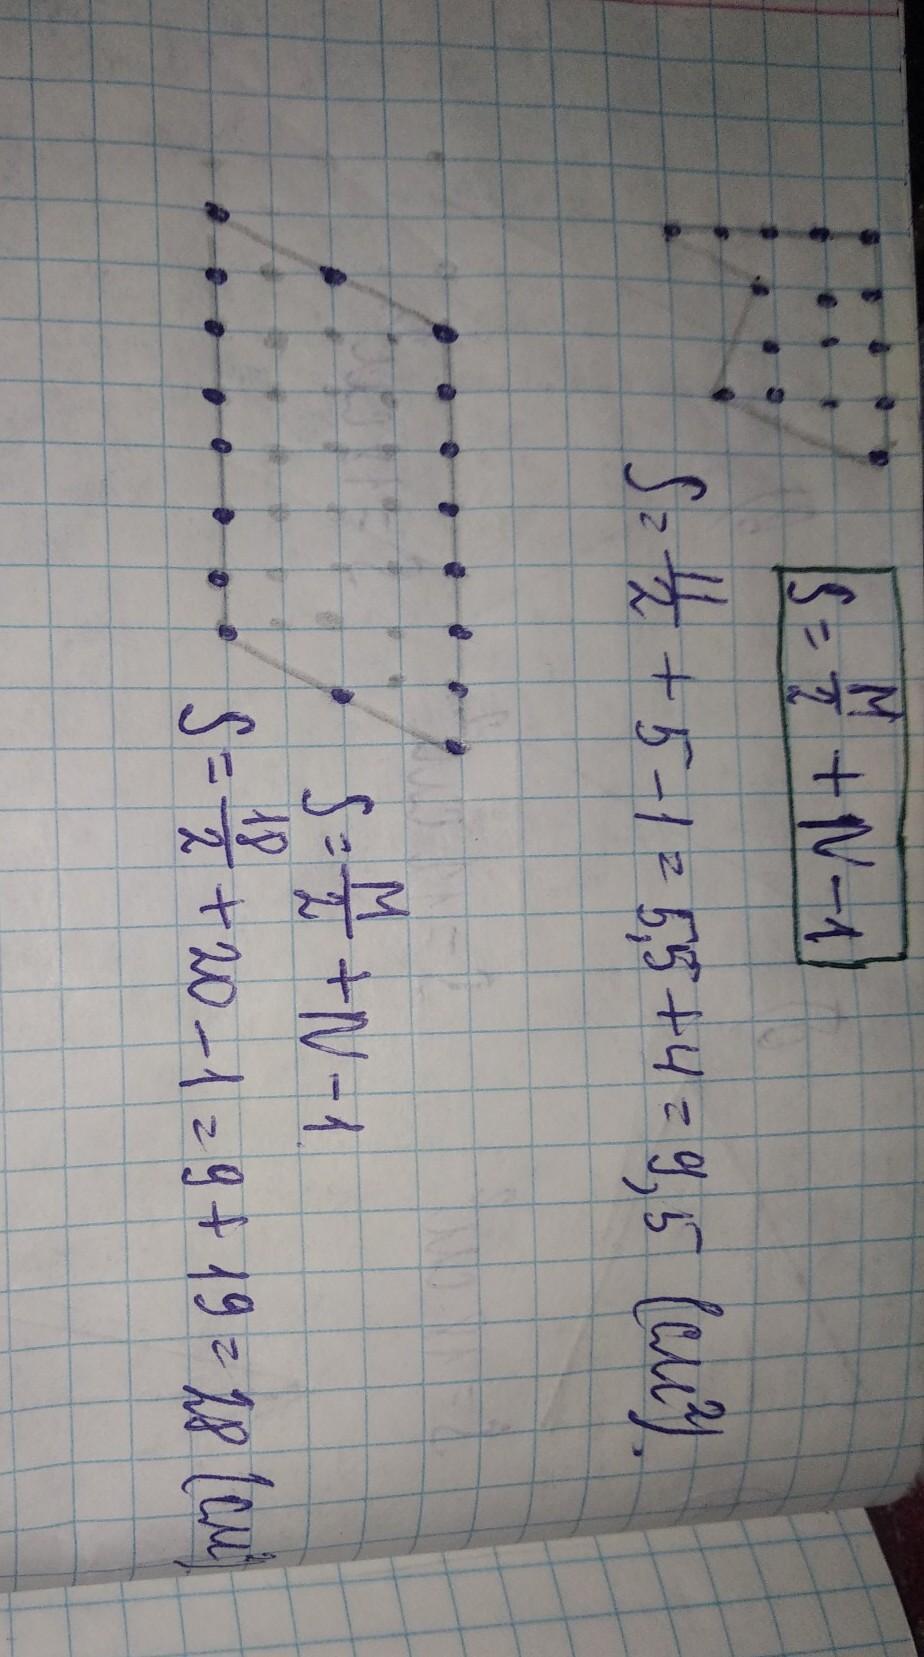 S = M/2 + N - 1
S = 11/2 + 5 - 1 = 5,5 + 4 = 9,5 (см²).
S = M/2 + N - 1
S = 18/2 + 20 - 1 = 9 + 19 = 28 (см²)